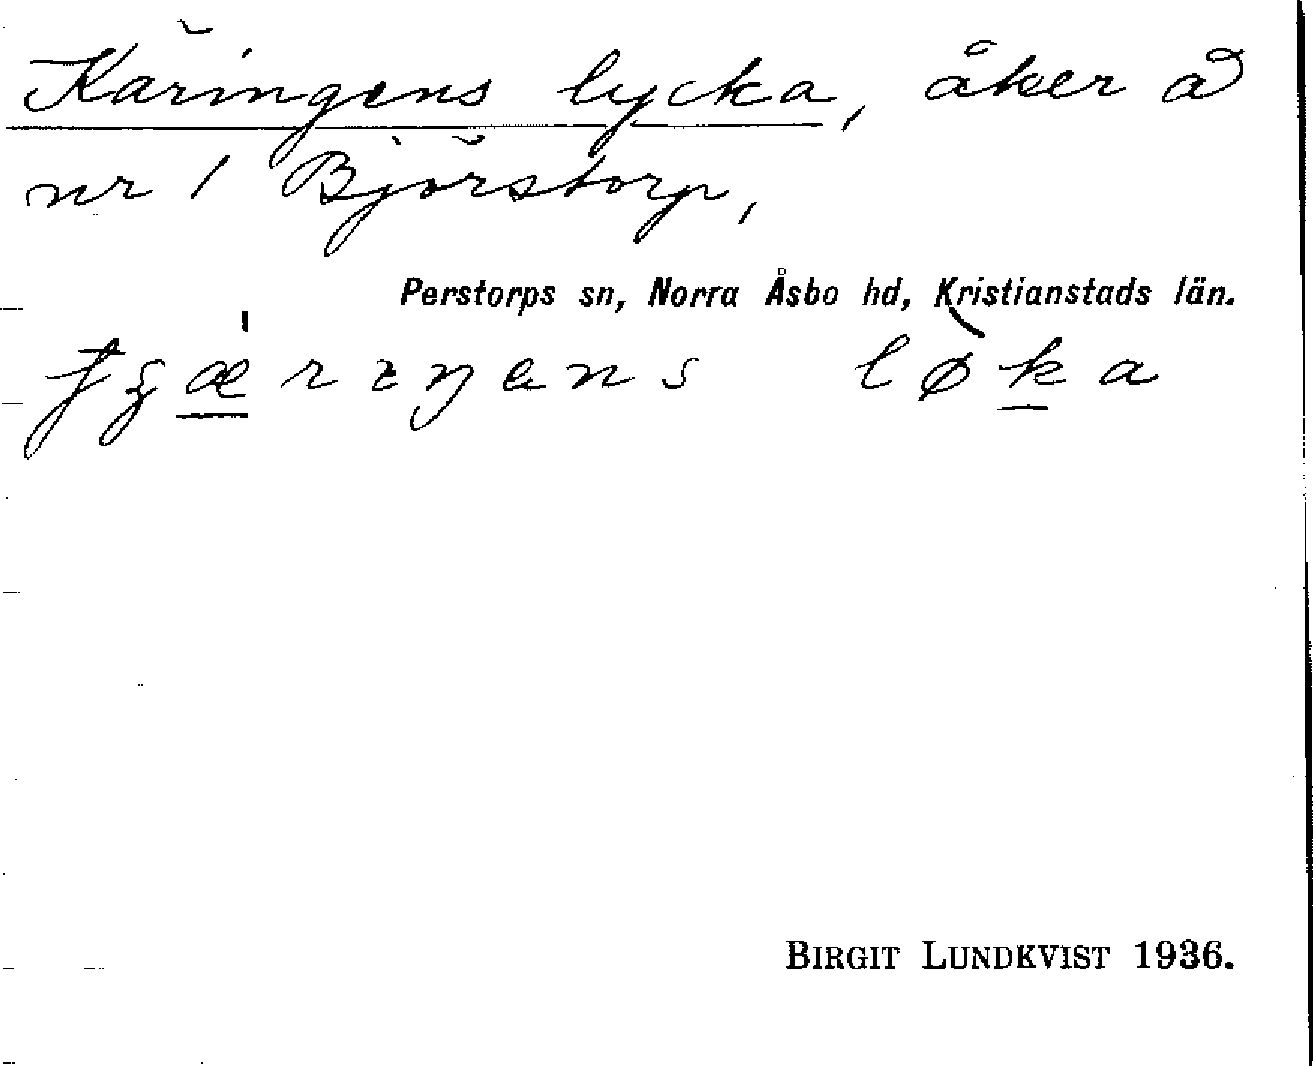 Käringens lycka, åker å
nr 1 Björstorp,
Perstorps sn, Norra Åsbo hd, Kristianstads län.
BIRGIT LUNDKVIST 1936.